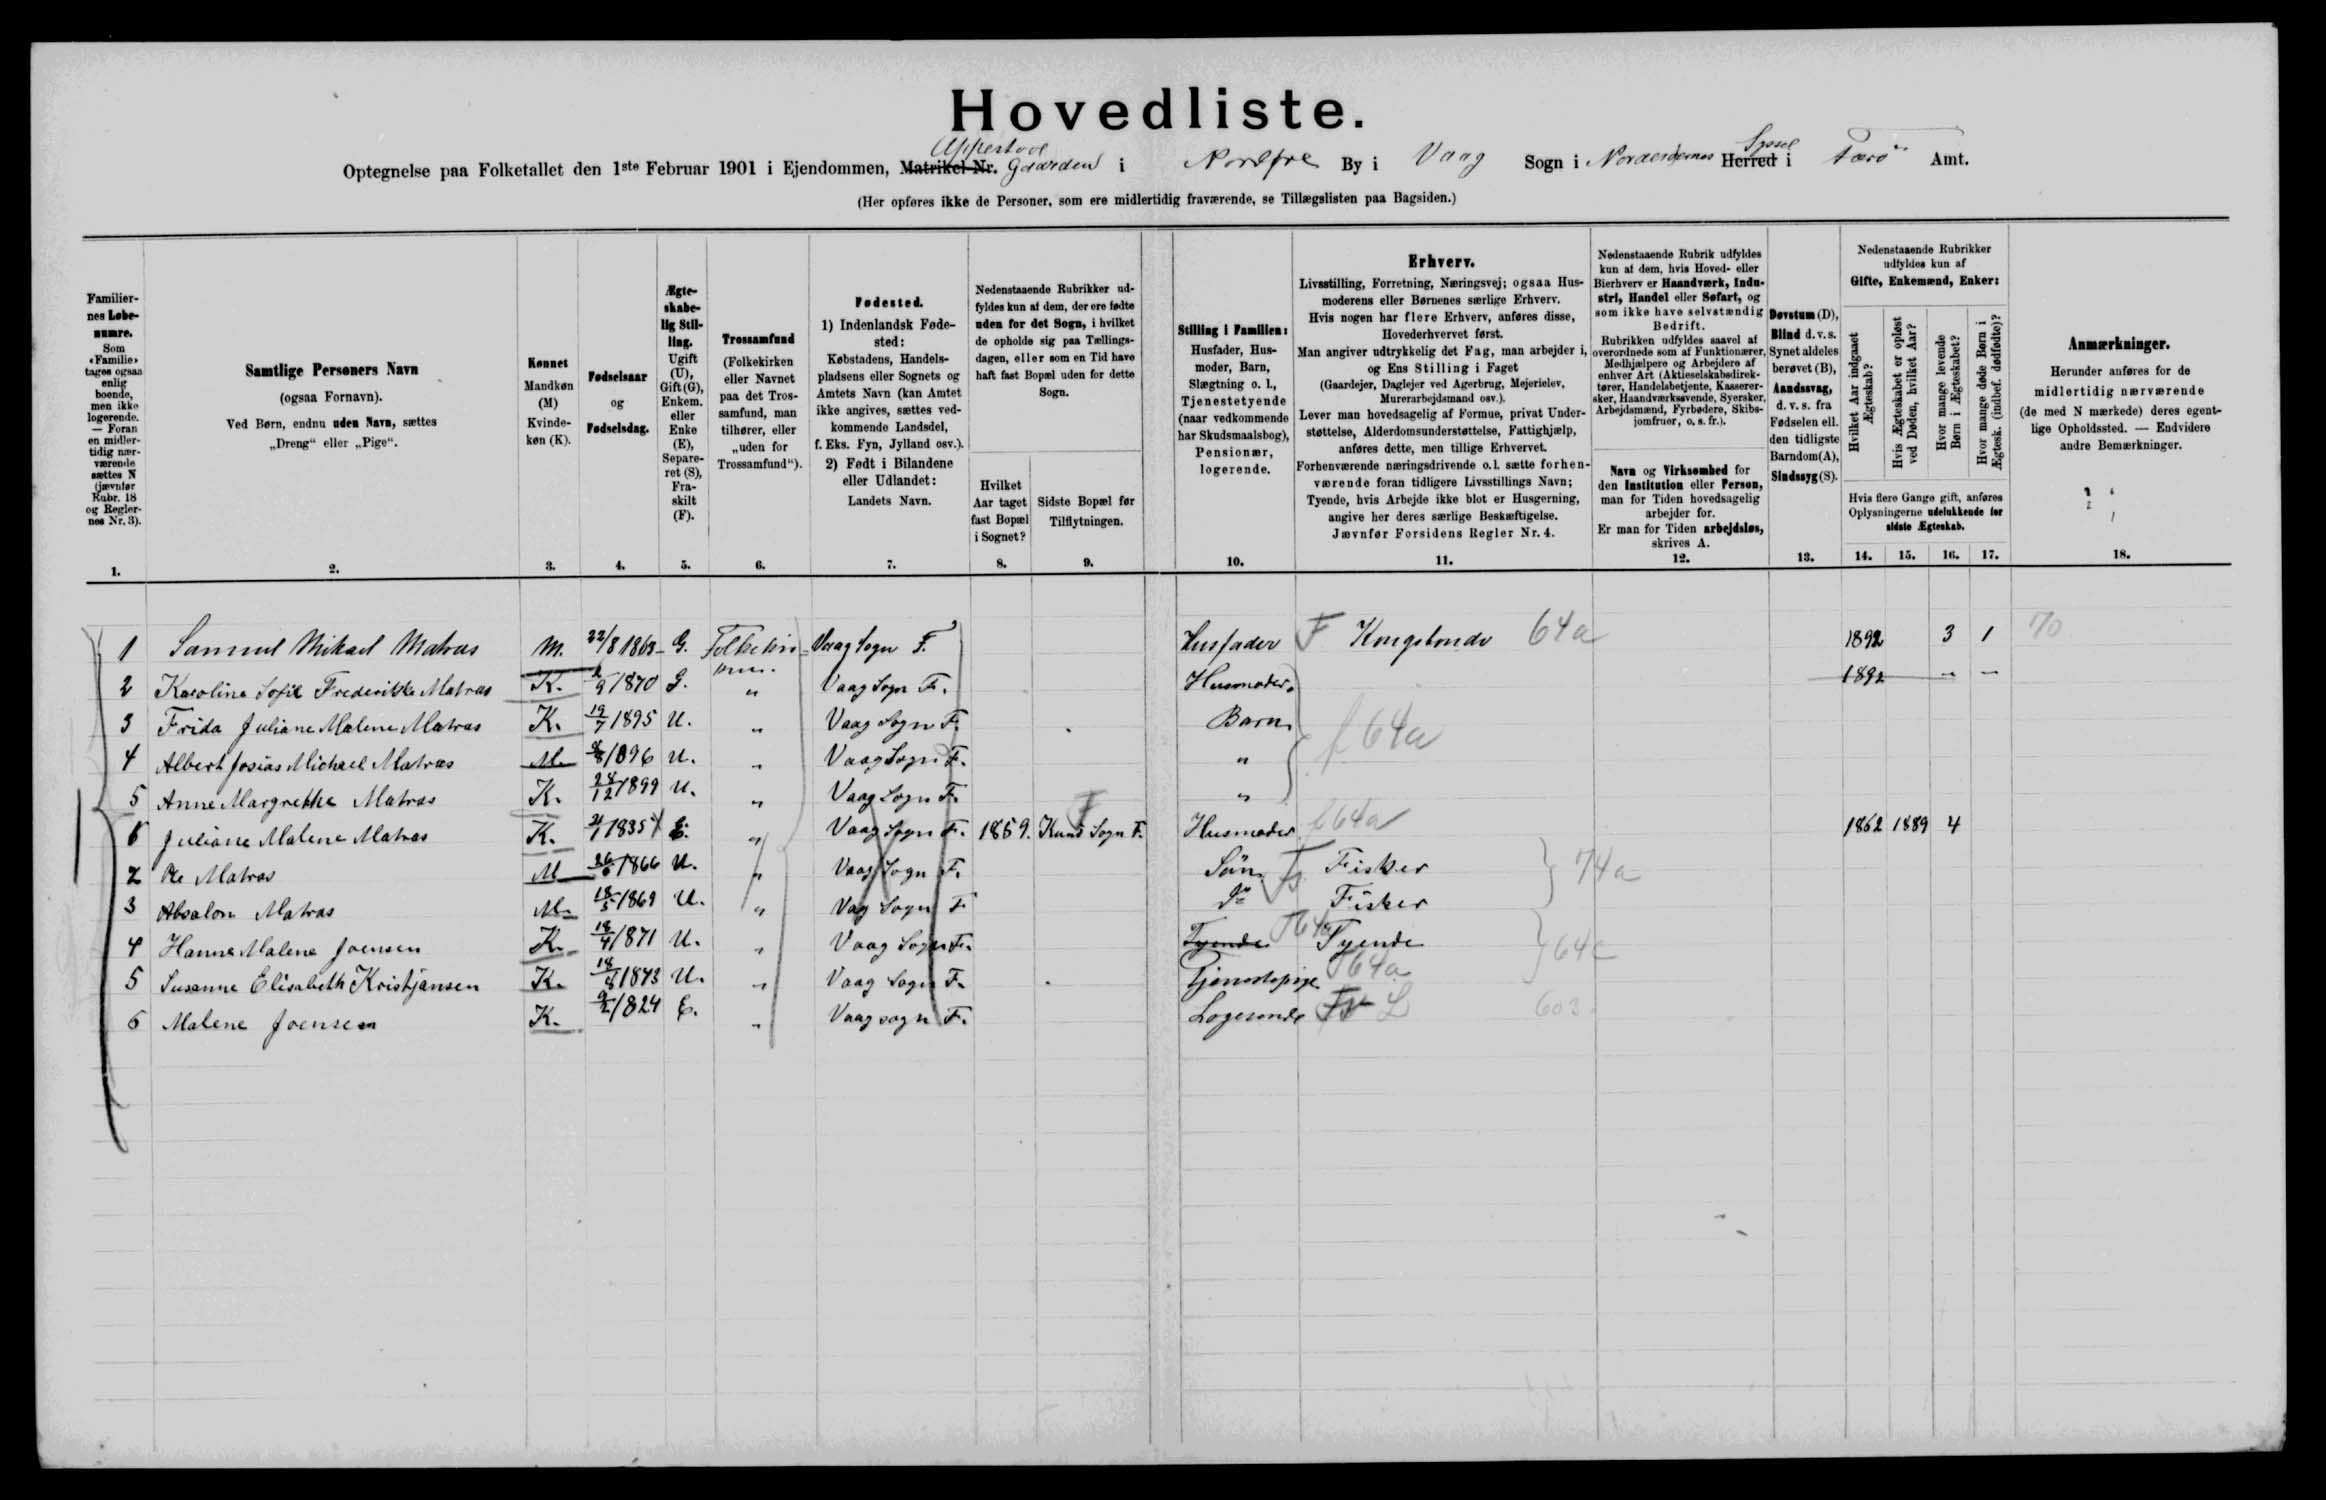 Hovedliste.
Optegnelse paa Folketallet den 1ste Februar 1901 i Ejendommen, Matrikel Nr. Gaarden i Nordøre By i Vaag Sogn i Norderøernes Herred Syssel i Færø Amt.
(Her opføres ikke de Personer, som ere midlertidig fraværende, se Tillægslisten paa Bagsiden.)
Familiernes Løbenumre.
Som «Familie» tages ogsaa enlig boende, men ikke logerende. — Foran en midlertidig nærværende sættes N (jævnfør Rubr. 18 og Reglernes Nr. 3).
1.
Samtlige Personers Navn
(ogsaa Fornavn).
Ved Børn, endnu uden Navn, sættes
„Dreng“ eller „Pige“.
2.
Kønnet
Mandkøn (M)
Kvindekøn (K).
3.
Fødselsaar
og
Fødselsdag.
4.
Ægteskabelig Stilling.
Ugift (U), Gift (G), Enkem. eller Enke (E), Separeret (S), Fraskilt (F).
5.
Trossamfund
(Folkekirken eller Navnet paa det Trossamfund, man tilhører, eller „uden for Trossamfund“).
6.
Fødested.
1) Indenlandsk Fødested:
Købstadens, Handelspladsens eller Sognets og Amtets Navn (kan Amtet ikke angives, sættes vedkommende Landsdel, f. Eks. Fyn, Jylland osv.).
2) Født i Bilandene eller Udlandet:
Landets Navn.
7.
Nedenstaaende Rubrikker udfyldes kun af dem, der ere fødte uden for det Sogn, i hvilket de opholde sig paa Tællingsdagen, eller som en Tid have haft fast Bopæl uden for dette Sogn.
Hvilket Aar taget fast Bopæl i Sognet?
8.
Sidste Bopæl før Tilflytningen.
9.
Stilling i Familien:
Husfader, Husmoder, Barn, Slægtning o. l., Tjenestetyende (naar vedkommende har Skudsmaalsbog), Pensionær, logerende.
10.
Erhverv.
Livsstilling, Forretning, Næringsvej; ogsaa Husmoderens eller Børnenes særlige Erhverv.
Hvis nogen har flere Erhverv, anføres disse, Hovederhvervet først.
Man angiver udtrykkelig det Fag, man arbejder i, og Ens Stilling i Faget
(Gaardejer, Daglejer ved Agerbrug, Mejerielev, Murerarbejdsmand osv.).
Lever man hovedsagelig af Formue, privat Understøttelse, Alderdomsunderstøttelse, Fattighjælp, anføres dette, men tillige Erhvervet.
Forhenværende næringsdrivende o. l. sætte forhenværende foran tidligere Livsstillings Navn;
Tyende, hvis Arbejde ikke blot er Husgerning, angive her deres særlige Beskæftigelse.
Jævnfør Forsidens Regler Nr. 4.
11.
Nedenstaaende Rubrik udfyldes kun af dem, hvis Hoved- eller Bierhverv er Haandværk, Industri, Handel eller Søfart, og som ikke have selvstændig Bedrift.
Rubrikken udfyldes saavel af overordnede som af Funktionærer, Medhjælpere og Arbejdere af enhver Art (Aktieselskabsdirektører, Handelsbetjente, Kasserersker, Haandværkssvende, Syersker, Arbejdsmænd, Fyrbødere, Skibsjomfruer, o. s. fr.).
Navn og Virksomhed for den Institution eller Person, man for Tiden hovedsagelig arbejder for.
Er man for Tiden arbejdsløs, skrives A.
12.
Døvstum (D), Blind d. v. s. Synet aldeles berøvet (B), Aandssvag, d. v. s. fra Fødselen ell. den tidligste Barndom (A), Sindssyg (S).
13.
Nedenstaaende Rubrikker udfyldes kun af
Gifte, Enkemænd, Enker:
Hvilket Aar indgaaet Ægteskab?
Hvis Ægteskabet er opløst ved Døden, hvilket Aar?
Hvor mange levende Børn i Ægteskabet?
Hvor mange døde Børn i Ægtesk. (indbef. dødfødte)?
Hvis flere Gange gift, anføres Oplysningerne udelukkende for sidste Ægteskab.
14. 15. 16. 17.
Anmærkninger.
Herunder anføres for de midlertidig nærværende (de med N mærkede) deres egentlige Opholdssted. — Endvidere andre Bemærkninger.
18.
1 Samuel Mikael Matras M. 22/8 1863 G. Folkekirken Vaag Sogn F. Husfader F Kongsbonde 64a 1892 3 1 70
2 Karoline Sofie Frederikke Matras K. 1870 G. „ Vaag Sogn F. Husmoder 1892 — —
3 Frida Juliane Malene Matras K. 19/7 1895 U. „ Vaag Sogn F. Barn f 64a
4 Albert Josias Michael Matras M. 1896 U. „ Vaag Sogn F. „
5 Anne Margrethe Matras K. 28/12 1899 U. „ Vaag Sogn F. „
6 Juliane Malene Matras K. 1835 E. „ Vaag Sogn F. 1859. Kuns Sogn F. Husmoder f 64a 1862 1889 4
2 Ole Matras M 26/6 1866 U. „ Vaag Sogn F. Søn Fisker 74a
3 Absalon Matras M. 18/5 1869 U. „ Vag Sogn F do Fisker
4 Hanne Malene Joensen K. 18/4 1871 U. „ Vaag Sogn F. Tyende Tyende 64c
5 Susanne Elisabeth Kristjansen K. 18/8 1873 U. „ Vaag Sogn F. Tjenestepige 64a
6 Malene Joensen K. 9/2 1824 E. „ Vaag sogn F. Logerende L 603